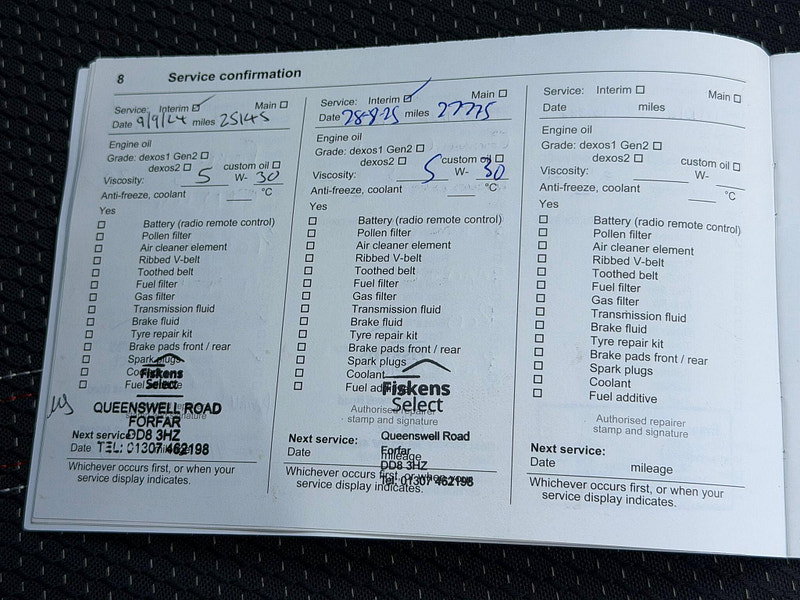 8 Service confirmation
Service: Interim ☑ Main ☐
Date 9/9/24 miles 25145
Engine oil
Grade: dexos1 Gen2 ☐
dexos2 ☐ custom oil ☐
Viscosity: 5 W- 30
Anti-freeze, coolant °C
Yes
☐ Battery (radio remote control)
☐ Pollen filter
☐ Air cleaner element
☐ Ribbed V-belt
☐ Toothed belt
☐ Fuel filter
☐ Gas filter
☐ Transmission fluid
☐ Brake fluid
☐ Tyre repair kit
☐ Brake pads front / rear
☐ Spark plugs
☐ Coolant
☐ Fuel additive
Fiskens
Select
QUEENSWELL ROAD
FORFAR
DD8 3HZ
TEL: 01307 462198
stamp and signature
Next service:
Date mileage
Whichever occurs first, or when your
service display indicates.
Service: Interim ☑ Main ☐
Date 28-8-25 miles 27775
Engine oil
Grade: dexos1 Gen2 ☐
dexos2 ☐ custom oil ☐
Viscosity: 5 W- 30
Anti-freeze, coolant °C
Yes
☐ Battery (radio remote control)
☐ Pollen filter
☐ Air cleaner element
☐ Ribbed V-belt
☐ Toothed belt
☐ Fuel filter
☐ Gas filter
☐ Transmission fluid
☐ Brake fluid
☐ Tyre repair kit
☐ Brake pads front / rear
☐ Spark plugs
☐ Coolant
☐ Fuel additive
Fiskens
Select
Authorised repairer
stamp and signature
Queenswell Road
Forfar
DD8 3HZ
Tel: 01307 462198
Next service:
Date mileage
Whichever occurs first, or when your
service display indicates.
Service: Interim ☐ Main ☐
Date miles
Engine oil
Grade: dexos1 Gen2 ☐
dexos2 ☐ custom oil ☐
Viscosity: W-
Anti-freeze, coolant °C
Yes
☐ Battery (radio remote control)
☐ Pollen filter
☐ Air cleaner element
☐ Ribbed V-belt
☐ Toothed belt
☐ Fuel filter
☐ Gas filter
☐ Transmission fluid
☐ Brake fluid
☐ Tyre repair kit
☐ Brake pads front / rear
☐ Spark plugs
☐ Coolant
☐ Fuel additive
Authorised repairer
stamp and signature
Next service:
Date mileage
Whichever occurs first, or when your
service display indicates.